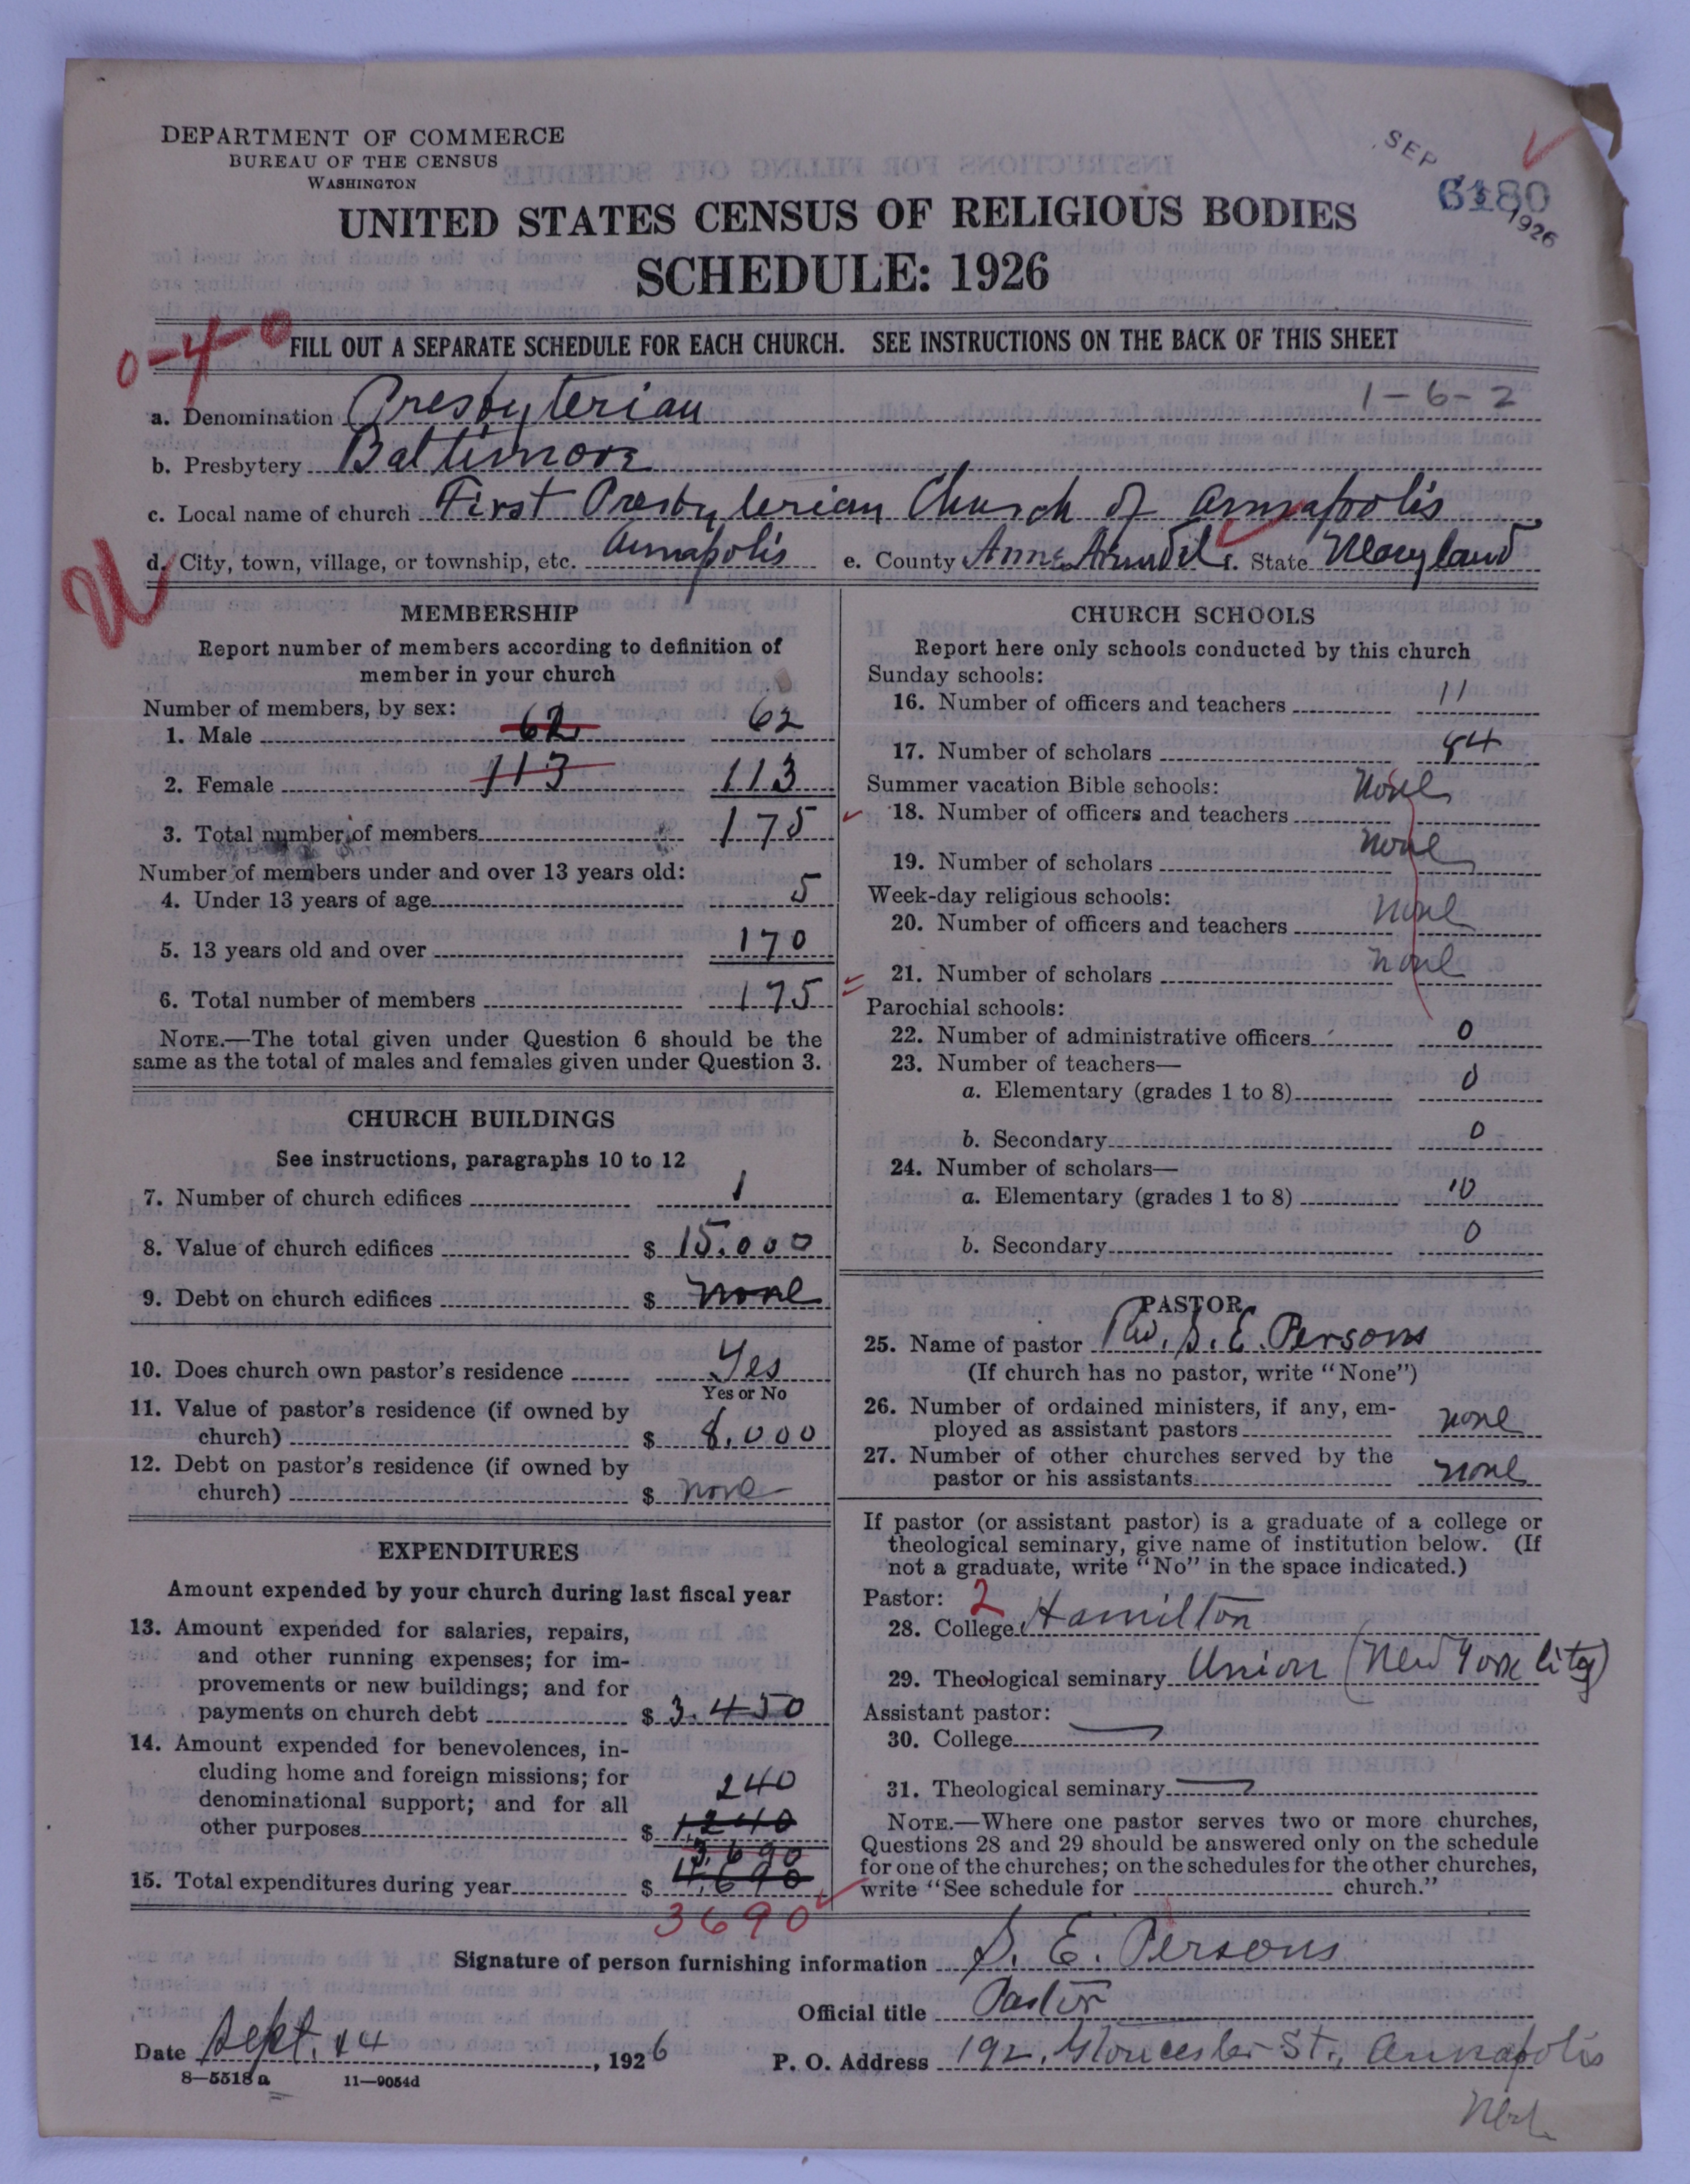 DEPARTMENT OF COMMERCE
BUREAU OF THE CENSUS
WASHINGTON
SEP 1926
6180
UNITED STATES CENSUS OF RELIGIOUS BODIES
SCHEDULE: 1926
0-4-0
FILL OUT A SEPARATE SCHEDULE FOR EACH CHURCH. SEE INSTRUCTIONS ON THE BACK OF THIS SHEET
1-6-2
a. Denomination Presbyterian
b. Presbytery Baltimore
c. Local name of church First Presbyterian Church of Annapolis
d. City, town, village, or township, etc. Annapolis e. County Anne Arundel f. State Maryland
MEMBERSHIP
Report number of members according to definition of
member in your church
Number of members, by sex:
1. Male 62 62
2. Female 113 113
3. Total number of members 175
Number of members under and over 13 years old:
4. Under 13 years of age 5
5. 13 years old and over 170
6. Total number of members 175
NOTE.—The total given under Question 6 should be the
same as the total of males and females given under Question 3.
CHURCH BUILDINGS
See instructions, paragraphs 10 to 12
7. Number of church edifices 1
8. Value of church edifices $ 15.000
9. Debt on church edifices $ none
10. Does church own pastor's residence Yes
Yes or No
11. Value of pastor's residence (if owned by
church) $ 8.000
12. Debt on pastor's residence (if owned by
church) $ none
EXPENDITURES
Amount expended by your church during last fiscal year
13. Amount expended for salaries, repairs,
and other running expenses; for im-
provements or new buildings; and for
payments on church debt $ 3.450
14. Amount expended for benevolences, in-
cluding home and foreign missions; for
denominational support; and for all 240
other purposes $ 1240
3,690
15. Total expenditures during year $ 4,690
3690
CHURCH SCHOOLS
Report here only schools conducted by this church
Sunday schools:
16. Number of officers and teachers 11
17. Number of scholars
Summer vacation Bible schools:
18. Number of officers and teachers none
19. Number of scholars none
Week-day religious schools:
20. Number of officers and teachers none
21. Number of scholars none
Parochial schools:
22. Number of administrative officers 0
23. Number of teachers—
a. Elementary (grades 1 to 8) 0
b. Secondary 0
24. Number of scholars—
a. Elementary (grades 1 to 8)
b. Secondary 0
PASTOR
25. Name of pastor Rev. S. E. Persons
(If church has no pastor, write "None")
26. Number of ordained ministers, if any, em-
ployed as assistant pastors none
27. Number of other churches served by the
pastor or his assistants none
If pastor (or assistant pastor) is a graduate of a college or
theological seminary, give name of institution below. (If
not a graduate, write "No" in the space indicated.)
Pastor: 2
28. College Hamilton
29. Theological seminary Union (New York City)
Assistant pastor:
30. College
31. Theological seminary
NOTE.—Where one pastor serves two or more churches,
Questions 28 and 29 should be answered only on the schedule
for one of the churches; on the schedules for the other churches,
write "See schedule for church."
Signature of person furnishing information S. E. Persons
Official title Pastor
Date Sept. 14, 1926 P. O. Address 192, Gloucester St., Annapolis
Md.
8—5518a 11—9054d